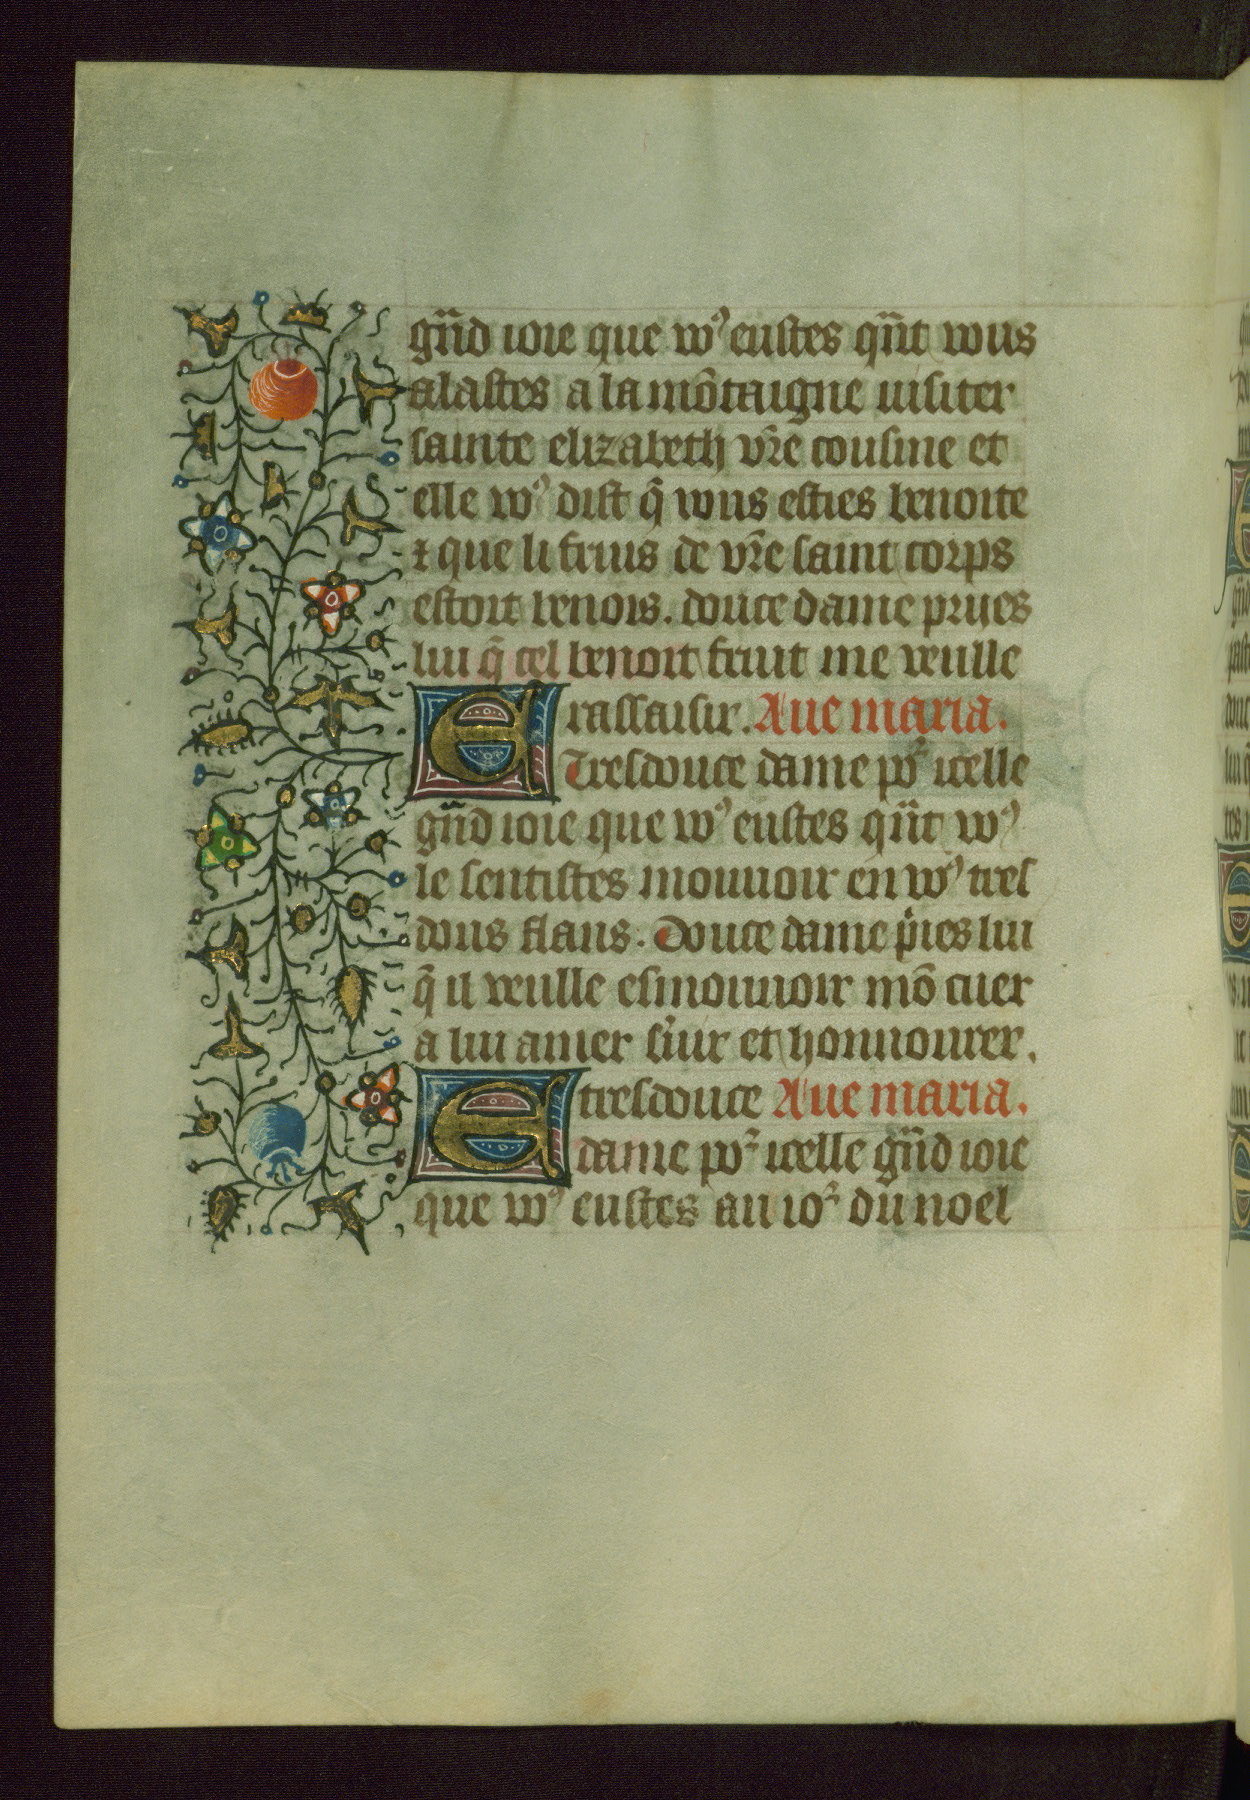 gn̄d ioie que vo⁹ eustes qn̄t vous
alastes a la mōtaigne uisiter
sainte elizabeth vr̄e cousine et
elle vo⁹ dist q̄ vous esties benoite
⁊ que li fruis de vr̄e saint corps
estoit benois. douce dame prijes
lui q̄ cel benoit fruit me veulle
rassaisir. Aue maria.
E Tresdouce dame po² icelle
gn̄d ioie que vo⁹ eustes qn̄t vo⁹
le sentistes mouuoir en vo⁹ tres
dous flans. Douce dame p̍ies lui
q̄ il veulle esmouuoir mō cuer
a lui amer s̍uir et honnourer.
E tresdouce Aue maria.
dame po² icelle gn̄d ioie
que vo⁹ eustes au io² du noel